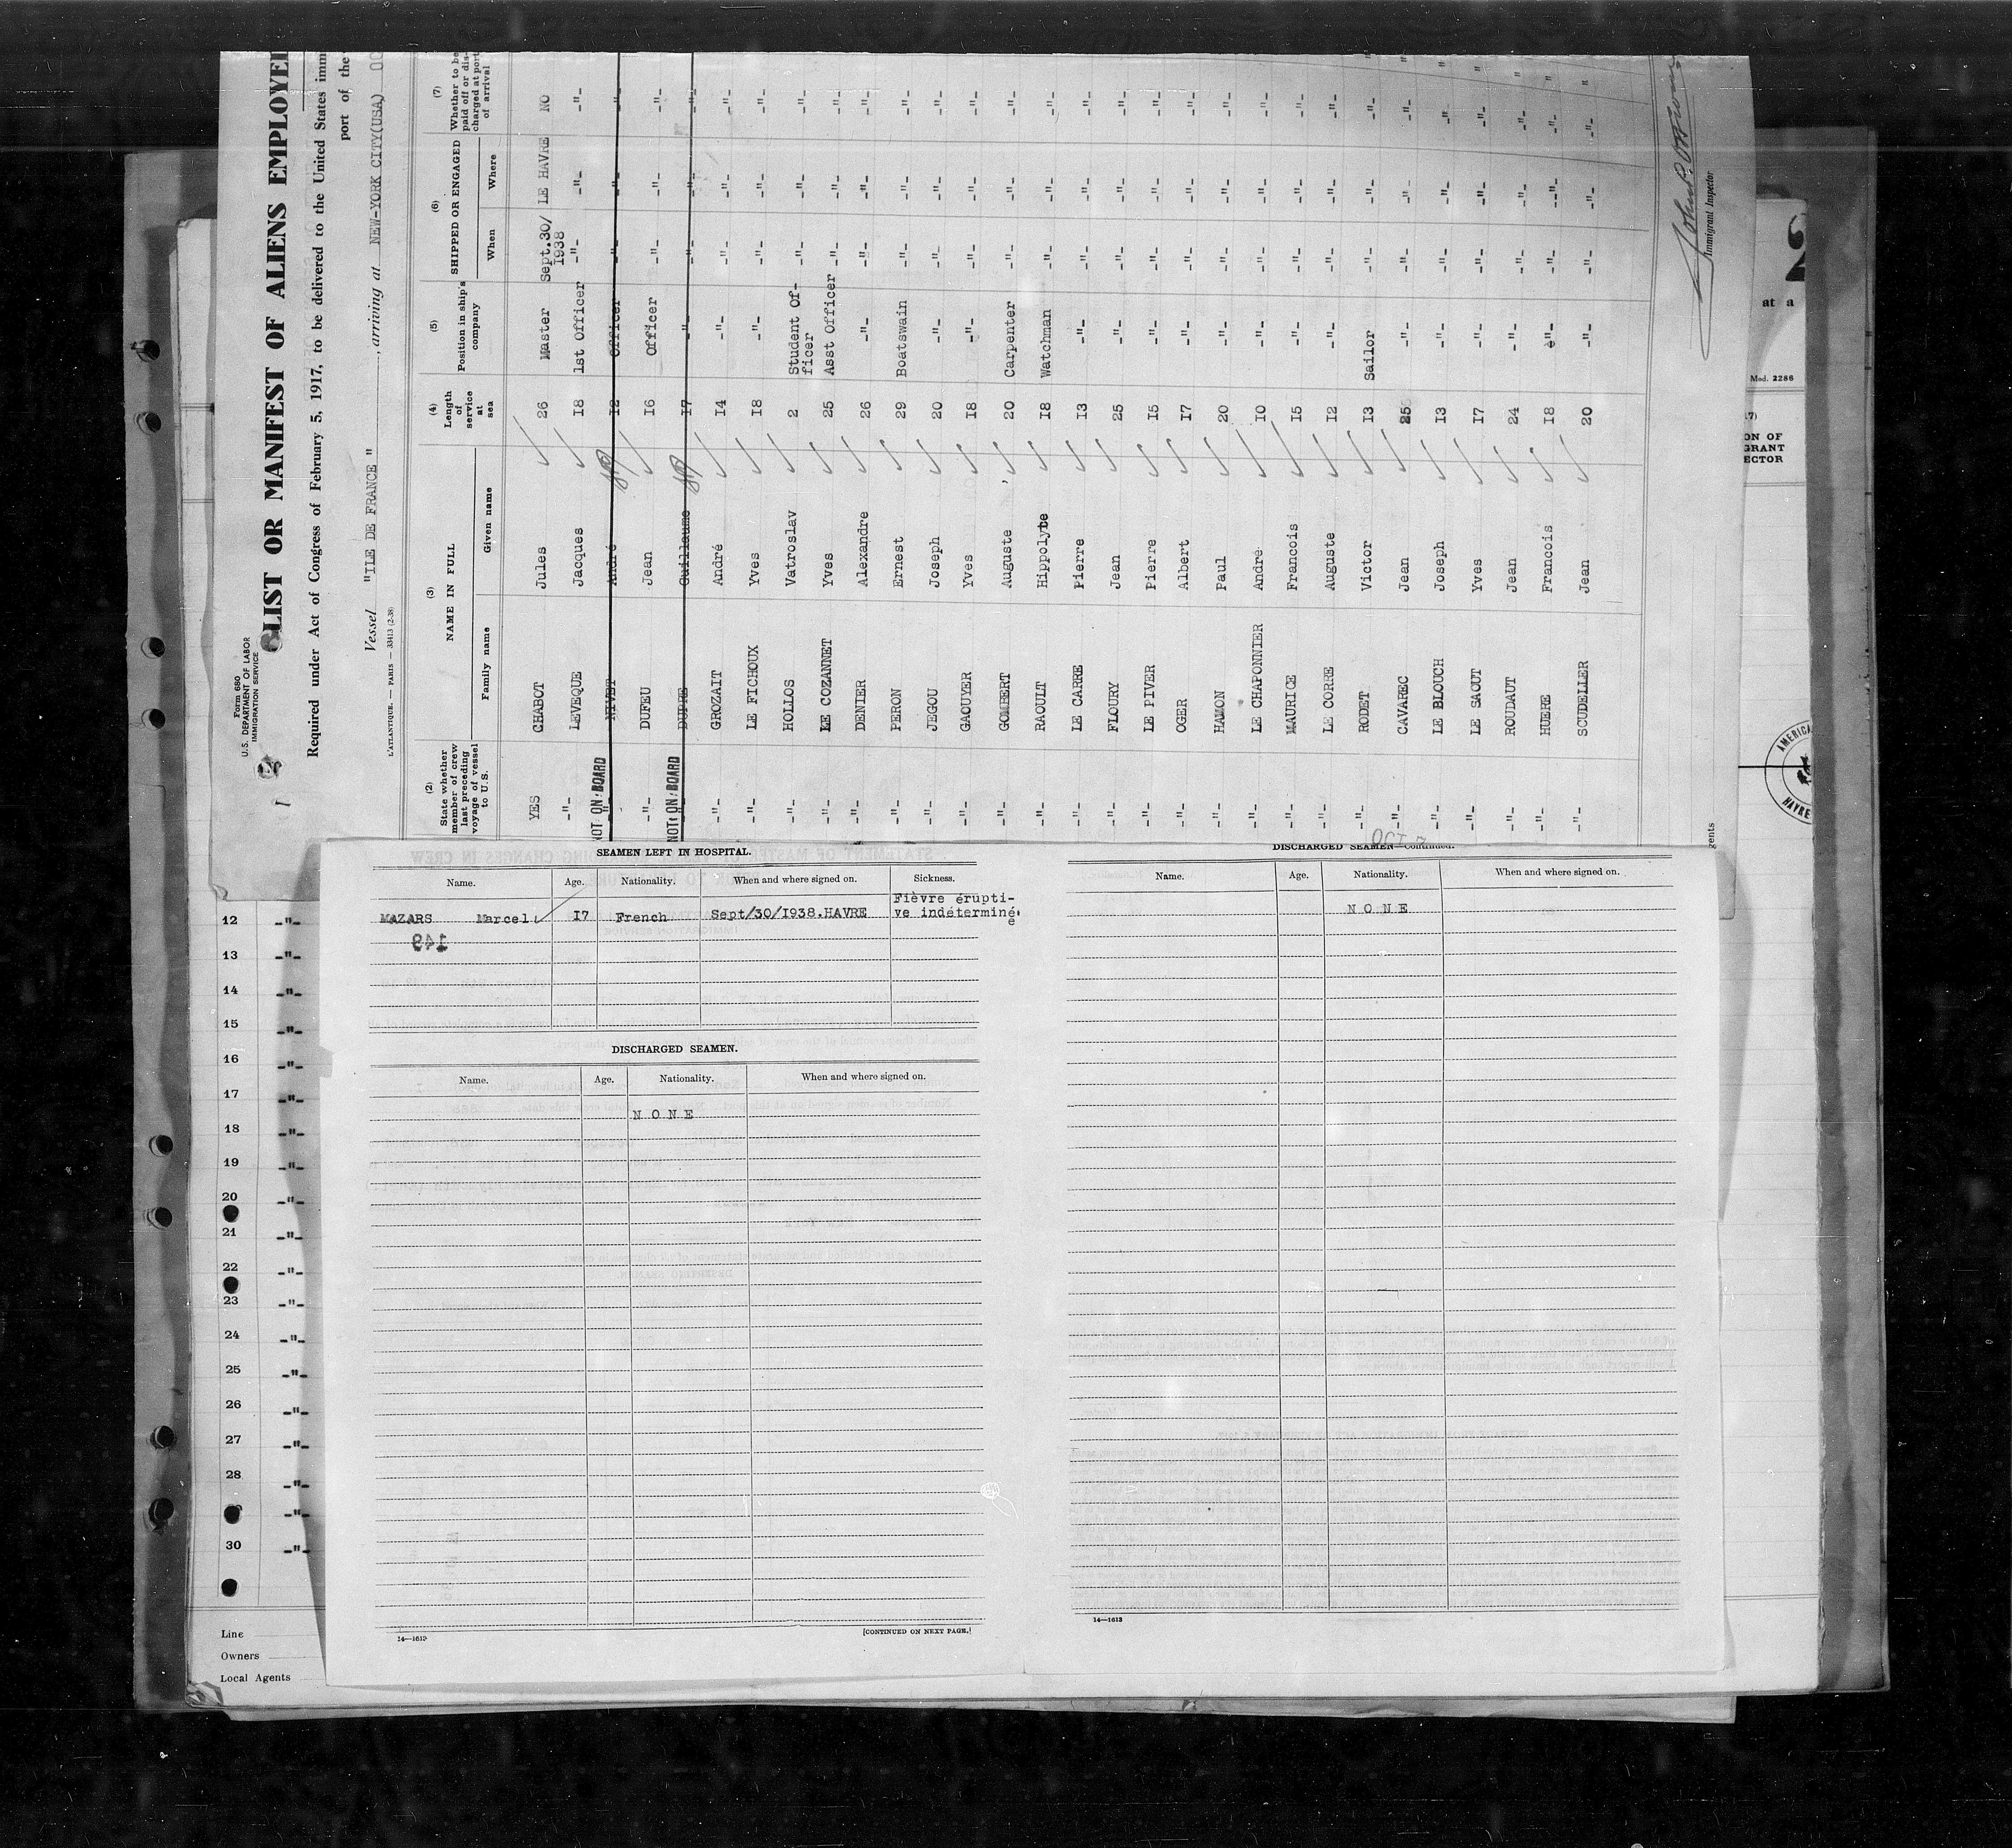 Form 680
U.S. DEPARTMENT OF LABOR
IMMIGRATION SERVICE
LIST OR MANIFEST OF ALIENS EMPLOYE
Required under Act of Congress of February 5, 1917, to be delivered to the United States imm
port of the
Vessel "ILE DE FRANCE", arriving at NEW-YORK CITY(USA)
L'ATLANTIQUE. — PARIS — 33413 (2-38)
(2) (3) (4) (5) (6) (7)
State whether member of crew last preceding voyage of vessel to U.S.
NAME IN FULL
Family name Given name
Length of service at sea
Position in ship's company
SHIPPED OR ENGAGED
When Where
Whether to be paid off or discharged at port of arrival
YES CHABOT Jules 26 Master Sept.30/1938 LE HAVRE NO
-"- LEVEQUE Jacques I8 1st Officer -"- -"- -"-
NOT ON BOARD -"- NIVET André I2 Officer -"- -"- -"-
-"- DUFEU Jean I6 Officer -"- -"- -"-
NOT ON BOARD -"- DUPRE Guillaume I7 -"- -"- -"- -"-
-"- GROZAIT André I4 -"- -"- -"- -"-
-"- LE FICHOUX Yves I8 -"- -"- -"- -"-
-"- HOLLOS Vatroslav 2 Student Officer -"- -"- -"-
-"- LE COZANNET Yves 25 Asst Officer -"- -"- -"-
-"- DENIER Alexandre 26 -"- -"- -"- -"-
-"- PERON Ernest 29 Boatswain -"- -"- -"-
-"- JEGOU Joseph 20 -"- -"- -"- -"-
-"- GAOUYER Yves I8 -"- -"- -"- -"-
-"- GOMBERT Auguste 20 Carpenter -"- -"- -"-
-"- RAOULT Hippolyte I8 Watchman -"- -"- -"-
-"- LE CARRE Pierre I3 -"- -"- -"- -"-
-"- FLOURY Jean 25 -"- -"- -"- -"-
-"- LE PIVER Pierre I5 -"- -"- -"- -"-
-"- OGER Albert I7 -"- -"- -"- -"-
-"- HAMON Paul 20 -"- -"- -"- -"-
-"- LE CHAPONNIER André I0 -"- -"- -"- -"-
-"- MAURICE Francois I5 -"- -"- -"- -"-
-"- LE CORRE Auguste I2 -"- -"- -"- -"-
-"- RODET Victor I3 Sailor -"- -"- -"-
-"- CAVAREC Jean 25 -"- -"- -"- -"-
-"- LE BLOUCH Joseph I3 -"- -"- -"- -"-
-"- LE SAOUT Yves I7 -"- -"- -"- -"-
-"- ROUDAUT Jean 24 -"- -"- -"- -"-
-"- HUERE Francois I8 -"- -"- -"- -"-
-"- SCUDELLER Jean 20 -"- -"- -"- -"-
Immigrant Inspector
gents
2
at a
Mod. 2286
ON OF
GRANT
ECTOR
AMERICA
HAVRE
SEAMEN LEFT IN HOSPITAL.
Name. Age. Nationality. When and where signed on. Sickness.
MAZARS Marcel I7 French Sept/30/I938.HAVRE Fièvre érupti-
ve indéterminée
149
DISCHARGED SEAMEN.
Name. Age. Nationality. When and where signed on.
NONE
14—1613
[CONTINUED ON NEXT PAGE.]
DISCHARGED SEAMEN—Continued.
Name. Age. Nationality. When and where signed on.
NONE
14—1613
12 -"-
13 -"-
14 -"-
15 -"-
16 -"-
17 -"-
18 -"-
19 -"-
20 -"-
21 -"-
22 -"-
23 -"-
24 -"-
25 -"-
26 -"-
27 -"-
28 -"-
-"-
30 -"-
Line
Owners
Local Agents